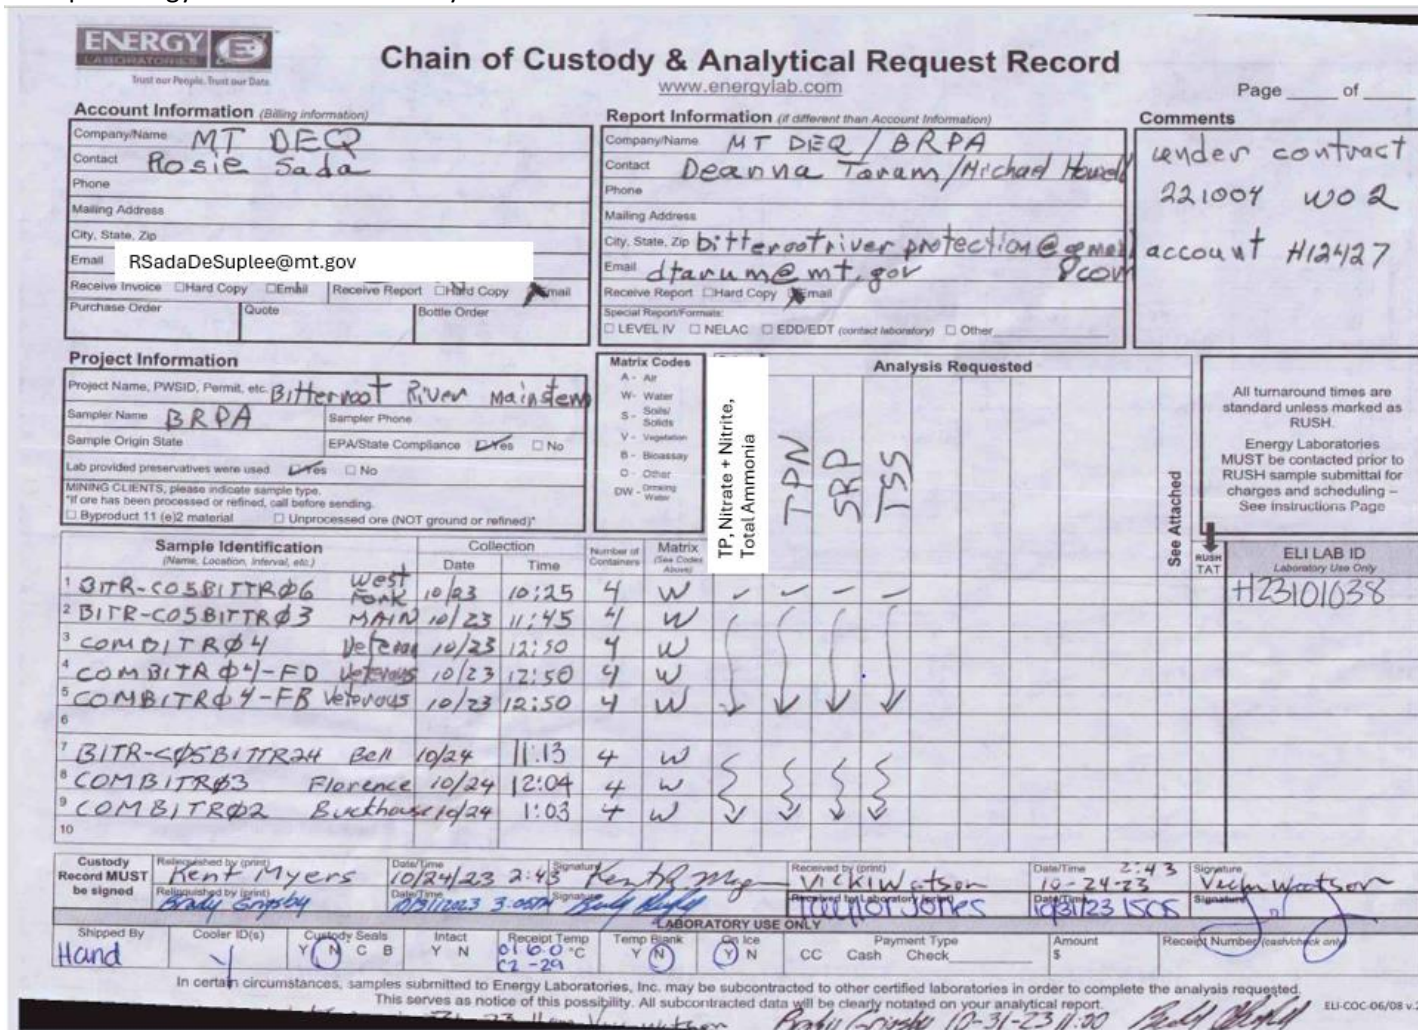 ENERGY
LABORATORIES
Trust our People. Trust our Data.
Chain of Custody & Analytical Request Record
www.energylab.com
Page of
Account Information (Billing information)
Company/Name MT DEQ
Contact Rosie Sada
Phone
Mailing Address
City, State, Zip
Email RSadaDeSuplee@mt.gov
Receive Invoice Hard Copy Email Receive Report Hard Copy Email
Purchase Order Quote Bottle Order
Report Information (if different than Account Information)
Company/Name MT DEQ / BRPA
Contact Deanna Tarum/Michael Howell
Phone
Mailing Address
City, State, Zip bitterootriver protection@gmail
Email dtarum@mt.gov com
Receive Report Hard Copy Email
Special Report/Formats:
LEVEL IV NELAC EDD/EDT (contact laboratory) Other
Comments
under contract
221004 WO2
account H12427
Project Information
Project Name, PWSID, Permit, etc. Bitterroot River Mainstem
Sampler Name BRPA Sampler Phone
Sample Origin State EPA/State Compliance Yes No
Lab provided preservatives were used Yes No
MINING CLIENTS, please indicate sample type.
*If ore has been processed or refined, call before sending.
Byproduct 11 (e)2 material Unprocessed ore (NOT ground or refined)*
Matrix Codes
A - Air
W- Water
S - Soils/
Solids
V - Vegetation
B - Bioassay
O - Other
DW - Drinking
Water
Analysis Requested
TP, Nitrate + Nitrite,
Total Ammonia
TPN
SRP
TSS
See Attached
All turnaround times are
standard unless marked as
RUSH.
Energy Laboratories
MUST be contacted prior to
RUSH sample submittal for
charges and scheduling –
See Instructions Page
Sample Identification
(Name, Location, Interval, etc.)
Collection
Date Time
Number of
Containers
Matrix
(See Codes
Above)
RUSH
TAT
ELI LAB ID
Laboratory Use Only
H23101038
1 BITR-C05BITTRØ6 West Fork 10/23 10:25 4 W
2 BITR-C05BITTRØ3 MAIN 10/23 11:45 4 W
3 COMBITRØ4 Veteran 10/23 12:50 4 W
4 COMBITRØ4-FD Veterans 10/23 12:50 4 W
5 COMBITRØ4-FB Veterans 10/23 12:50 4 W
6
7 BITR-CØ5BITTR24 Bell 10/24 11:13 4 W
8 COMBITRØ3 Florence 10/24 12:04 4 W
9 COMBITRØ2 Buckhouse 10/24 1:03 4 W
10
Custody
Record MUST
be signed
Relinquished by (print) Kent Myers Date/Time 10/24/23 2:43 Signature Received by (print) Vicki Watson Date/Time 10-24-23 2:43 Signature Vicki Watson
Relinquished by (print) Brady Grigsby Date/Time 10/31/2023 3:05PM Signature Received for Laboratory (print) Jones Date/Time 10/31/23 1505 Signature
LABORATORY USE ONLY
Shipped By Cooler ID(s) Custody Seals Intact Receipt Temp Temp Blank On Ice Payment Type Amount Receipt Number (cash/check only)
Hand Y N C B Y N °C Y N Y N CC Cash Check $
In certain circumstances, samples submitted to Energy Laboratories, Inc. may be subcontracted to other certified laboratories in order to complete the analysis requested.
This serves as notice of this possibility. All subcontracted data will be clearly notated on your analytical report.
ELI-COC-06/08 v.
Brady Grigsby 10-31-23 11:00